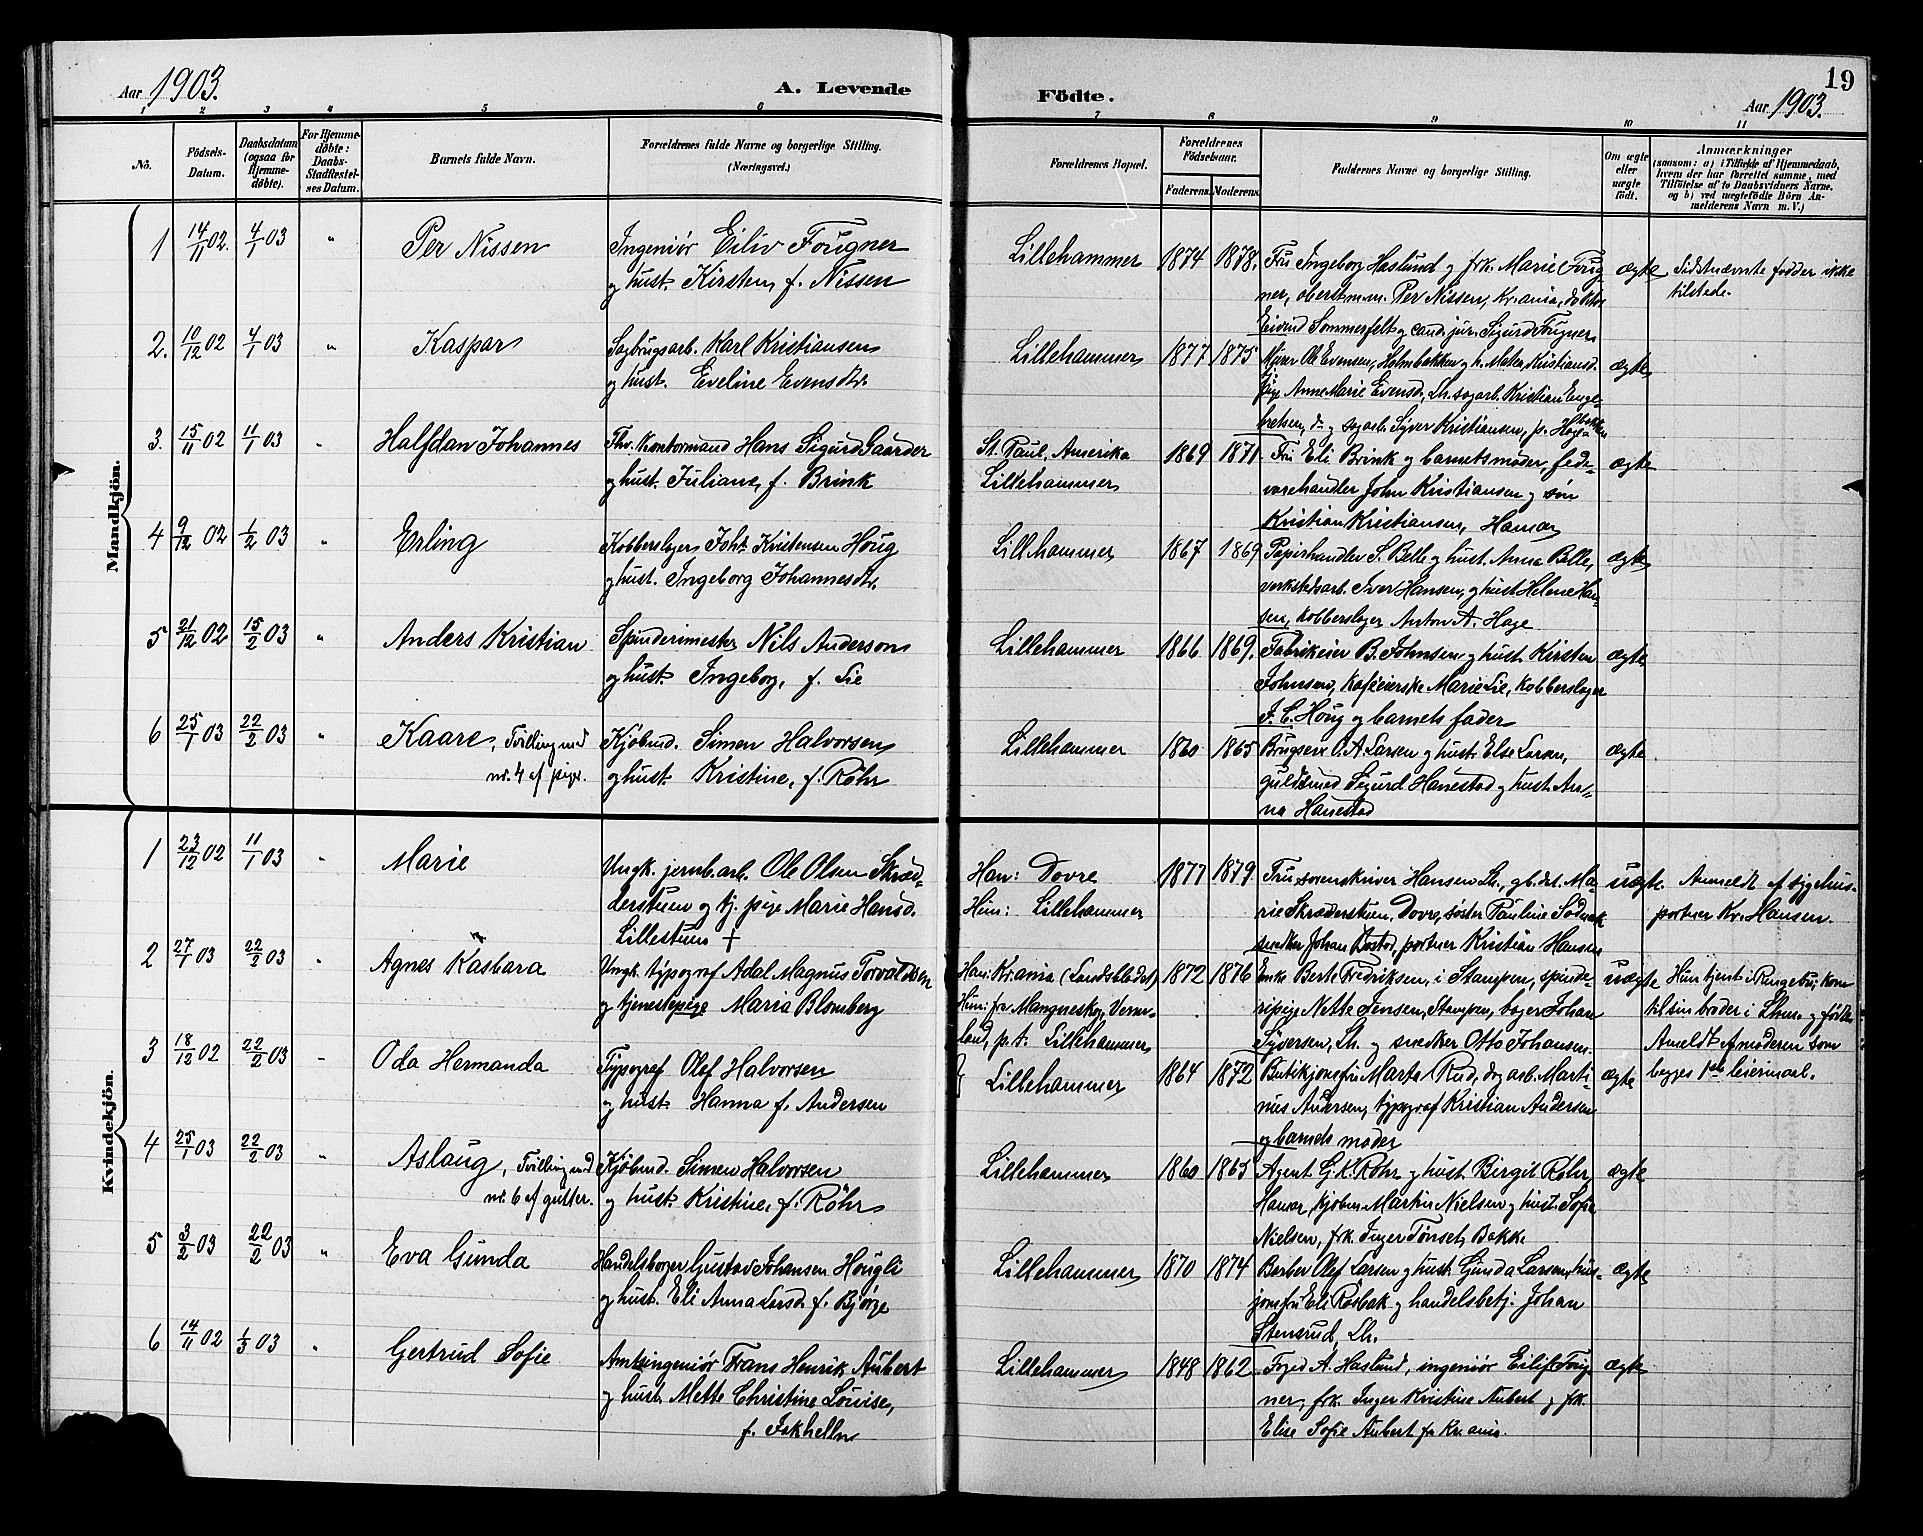 Aar 1903.
A. Levende
Födte.
19
Aar 1903.
1 2 3 4 5 6 7 8 9 10 11
No.
Födsels-Datum.
Daabsdatum (ogsaa for Hjemmedöbte).
For Hjemmedöbte: Daabs-Stadfestelses Datum.
Barnets fulde Navn.
Forældrenes fulde Navne og borgerlige Stilling. (Næringsvei.)
Forældrenes Bopæl.
Forældrenes Födselsaar.
Faderens. Moderens.
Faddernes Navne og borgerlige Stilling.
Om ægte eller uægte födt.
Anmærkninger
(saasom: a) i Tilfælde af Hjemmedaab, hvem der har forrettet samme, med Tilföielse af to Daabsvidners Navne, og b) ved uægtefödte Börn Anmelderens Navn m. V.)
Mandkjön.
1 14/11 02. 4/1 03 " Per Nissen
Ingeniør Eiliv Fougner
og hust. Kirsten, f. Nissen
Lillehammer 1874 1878.
Fru Ingeborg Haslund og frk. Marie Foug-
ner, oberstm.m. Per Nissen, Kr.ania, doktor
Eivind Sommerfelt og cand. jur. Sigurd Fougner
ægte Sidstnævnte fadder ikke
tilstede.
2. 10/12 02 4/1 03 " Kaspar
Sagbrugsarb. Karl Kristiansen
og hust. Eveline Evensdtr.
Lillehammer 1877 1875
Murer Ole Evensen, Holmbakken og h. Mater Kristiansd.
pige Anne Marie Evensd., Lh. sagarb. Kristian Enge-
bretsen, do og sagarb. Syver Kristiansen, pr. Hage-
ægte
3. 15/11 02 11/1 03 " Halfdan Johannes
Fhv. Kontormand Hans Sigurd Gaarder
og hust. Juliane, f. Brink
St. Paul, Amerika
Lillehammer
1869 1871
Fru Eli Brink og barnets moder, fede-
varehandler John Kristiansen og søn
Kristian Kristiansen, Hamar
ægte
4 9/12 02 1/2 03 " Erling
Kobberslager Joh. Kristensen Houg
og hust. Ingeborg Johannesdtr.
Lillehammer 1867 1869
Papirhandler S. Belle og hust. Anna Belle,
verkstedsarb. Iver Hansen, og hust. Helene Han-
sen, kobberslager Anton A. Hage
ægte
5 21/12 02 15/2 03 " Anders Kristian
Spinderimester Nils Anderson
og hust. Ingeborg, f. Lie
Lillehammer 1866 1869.
Fabrikeier B. Johnsen og hust. Kirsten
Johnsen, kaféeierske Marie Lie, kobberslager
J. C. Houg og barnets fader
ægte
6 25/1 03 22/2 03 " Kaare, Tvilling med
nr. 4 af piger.
Kjøbmd. Simen Halvorsen
og hust. Kristine, f. Röhr
Lillehammer 1860 1865
Brugseier O. A. Larsen og hust. Else Larsen,
guldsmed Sigurd Hanestad og hust. An-
na Hanestad
ægte.
Kvindekjön.
1 23/12 02 11/1 03 " Marie
Ungk. jernb.arb. Ole Olsen Skræd-
derstuen og tj. pige Marie Hansd.
Lillestuen +
Han: Dovre
Hun: Lillehammer
1877 1879
Fru sorenskriver Hansen Lh., gb.dat. Ma-
rie Skrædderstuen, Dovre, søster Pauline
snedker Johan portner Kristian Hansen
uægte Anmeldt af sygehus-
portner Kr. Hansen.
2 27/1 03 22/2 03 " Agnes Kasbara
Ungk. typograf Adal Magnus Torvaldsen
og tjenestepige Maria Blomberg
Han: Kr.ania (Landsbladet)
Hun: fra Mangneskog, Verm-
land, p. t. Lillehammer
1872 1876
Enke Berte Fredriksen, i Stampen, spinde-
ripige Nette Jensen, Stampen, bager Johan
Syversen, Lh. og snedker Otto Johansen.
uægte Hun tjent i Ringebu; kom
til sin broder i Lhmr. og fødte.
Anmeldt af moderen som
begges 1ste leiermaal.
3 18/12 02 22/2 03 " Oda Hermanda
Typograf Olaf Halvorsen
og hust. Hanna f. Andersen
Lillehammer 1864 1872
Butikjomfru Marta Rud, dagarb. Marti-
nius Andersen, typograf Kristian Andersen
og barnets moder
ægte
4 25/1 03 22/2 03 " Aslaug, Tvilling med
nr. 6 af gutter.
Kjøbmd. Simen Halvorsen
og hust. Kristine, f. Röhr
Lillehammer 1860 1865
Agent G. K. Röhr og hust. Birgit Röhr,
Hamar, kjøbm. Martin Nielsen og hust. Sofie
Nielsen, frk. Inger Tønset, Bakke
ægte
5 3/2 03 22/2 03 " Eva Gunda
Handelsborger Gustav Johansen Hougli
og hust. Eli Anna Larsd. f. Bjørge
Lillehammer 1870 1874
Barber Olaf Larsen og hust. Gunda Larsen, hus-
jomfru Eli Rosbak og handelsbetj. Johan
Stensrud, Lh.
ægte
6 14/11 02 1/3 03 " Gertrud Sofie
Amtsingeniør Frans Henrik Aubert
og hust. Mette Christine Louise,
f. Fakhelln
Lillehammer 1848 1862
Foged A. Haslund, ingeniør Eilif Foug-
ner, frk. Inger Kristine Aubert og frk.
Elise Sofie Aubert fra Kr.ania.
ægte